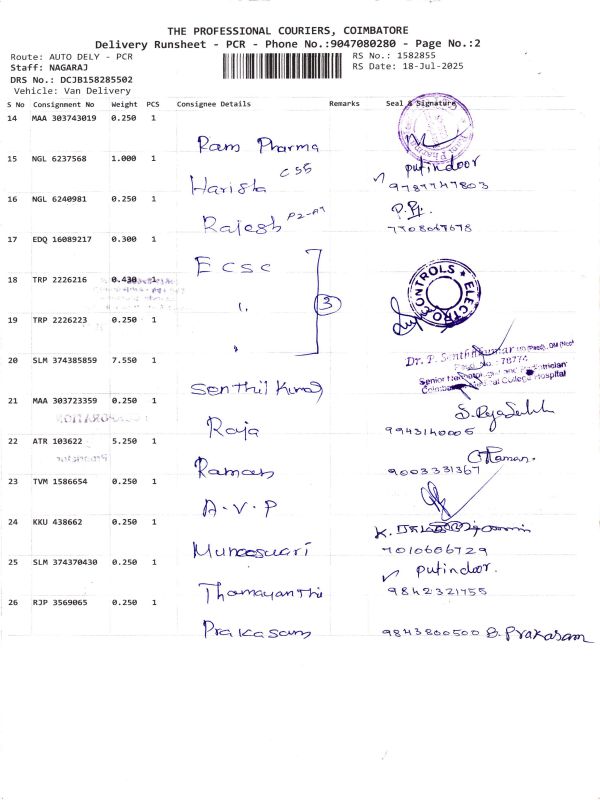 THE PROFESSIONAL COURIERS, COIMBATORE
Delivery Runsheet - PCR - Phone No.:9047080280 - Page No.:2
Route: AUTO DELY - PCR
RS No.: 1582855
Staff: NAGARAJ
RS Date: 18-Jul-2025
DRS No.: DCJB158285502
Vehicle: Van Delivery
S No Consignment No Weight PCS Consignee Details Remarks Seal & Signature
14 MAA 303743019 0.250 1
Ram Pharma
15 NGL 6237568 1.000 1
Harish CSS
putindoor
9787747803
16 NGL 6240981 0.250 1
Rajesh P2-A7
7708067678
17 EDQ 16089217 0.300 1
ECSC
18 TRP 2226216 0.430 1
"
3
ELECTRO CONTROLS
19 TRP 2226223 0.250 1
"
20 SLM 374385859 7.550 1
Senthil Kumar
Dr. P. Senthilkumar
Regd No.: 78774
Coimbatore Medical College Hospital
21 MAA 303723359 0.250 1
Raja
9943140005
22 ATR 103622 5.250 1
Raman
Raman
9003331367
23 TVM 1586654 0.250 1
A.V.P
24 KKU 438662 0.250 1
Muneeswari
K.
7010606729
25 SLM 374370430 0.250 1
Thamayanthi
putindoor.
9842321455
26 RJP 3569065 0.250 1
Prakasam
9843800500 B. Prakasam